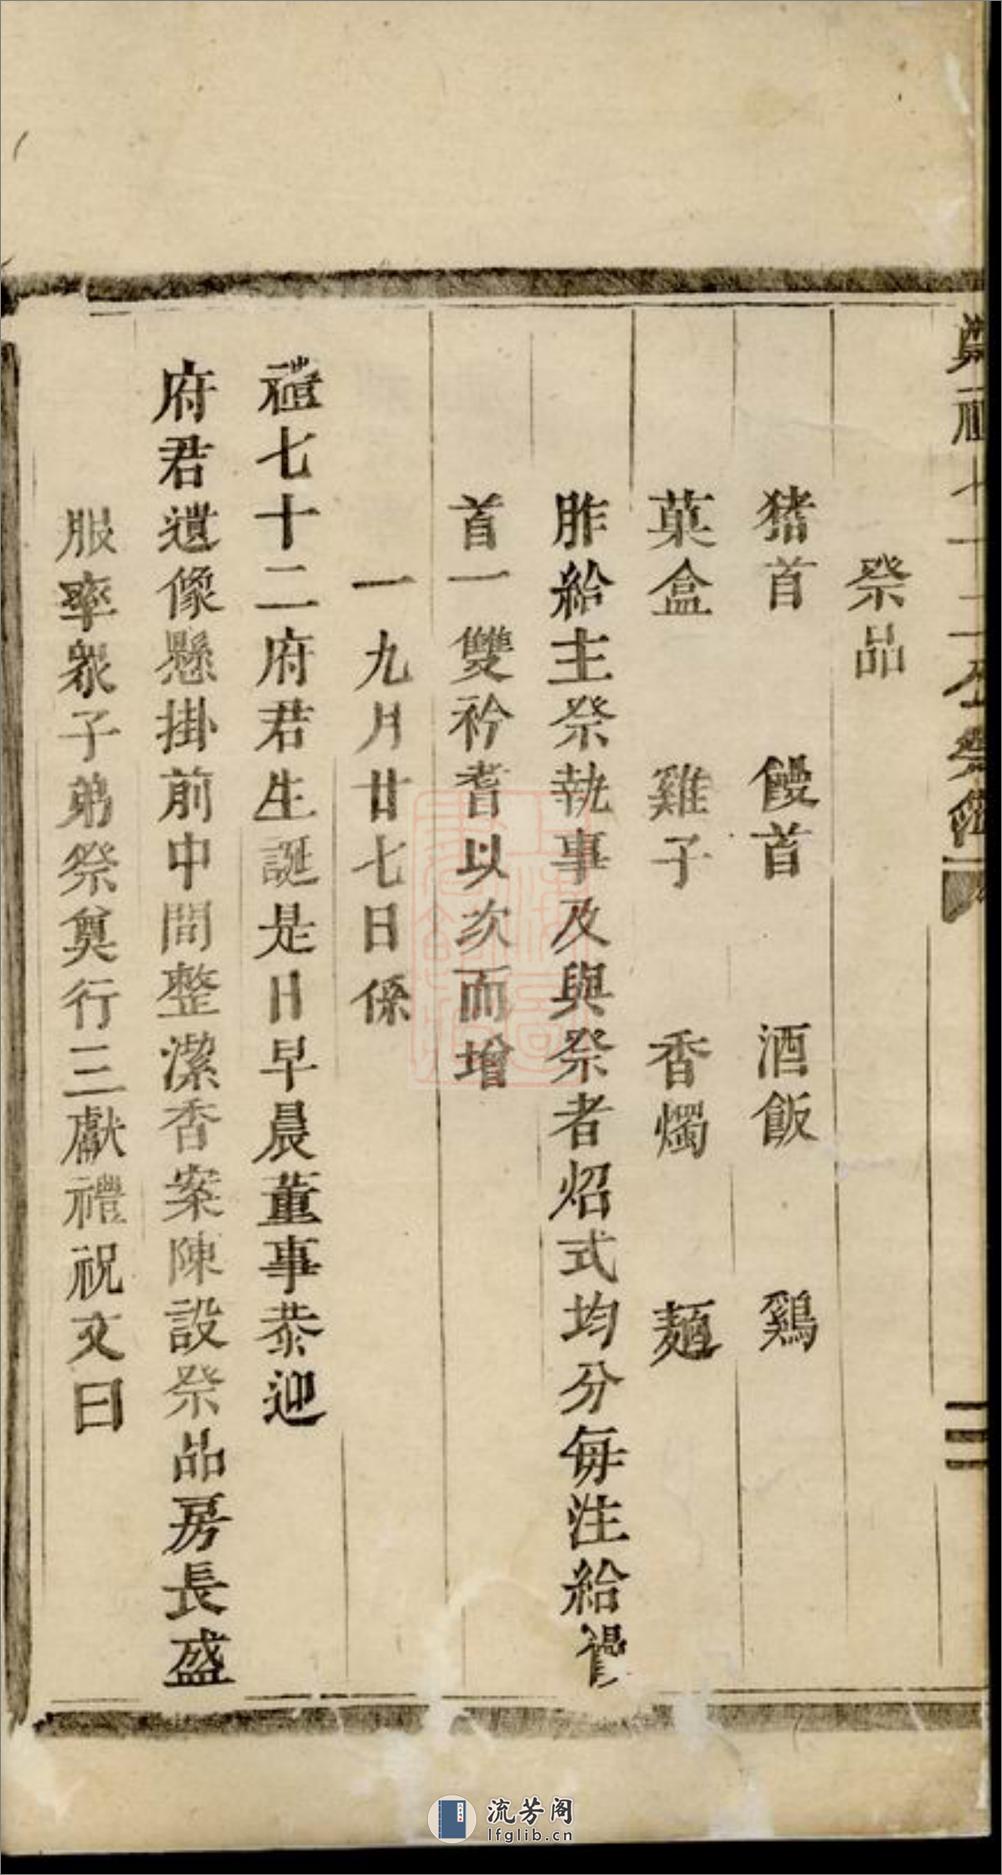 祭品
猪首　饅首　酒飯　鷄
菓盒　雞子　香燭　麵
胙給主祭執事及與祭者炤式均分每注給
首一雙衿耆以次而增
一九月廿七日係
禮七十二府君生誕是日早晨董事恭迎
府君遺像懸掛前中間整潔香案陳設祭品房長盛
服率衆子弟祭奠行三獻禮祝文曰
流芳阁
lfglib.cn